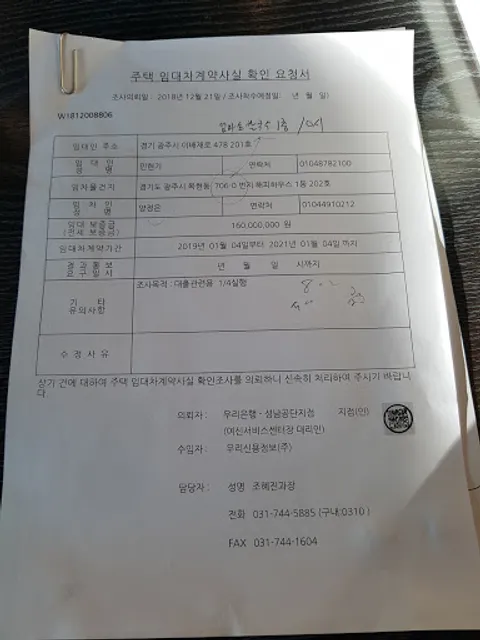 주택 임대차계약사실 확인 요청서
조사의뢰일 : 2018년 12월 21일 / 조사착수예정일: 년 월 일)
W1812008806
임대인 주소 경기 광주시 이배재로 478 201호
임 대 인 성 명 민현기 연락처 01048782100
임차물건지 경기도 광주시 목현동 706-0 번지 해피하우스 1동 202호
임 차 인 성 명 양정은 연락처 01044910212
임대 보증금 (전세 보증금) 160,000,000 원
임대차계약기간 2019년 01월 04일부터 2021년 01월 04일 까지
결 과 통 보 요 구 일 시 년 월 일 시까지
기 타 유의사항 조사목적 : 대출관련용 1/4실행
수 정 사 유
상기 건에 대하여 주택 임대차계약사실 확인조사를 의뢰하니 신속히 처리하여 주시기 바랍니
다.
의뢰자 : 우리은행 - 성남공단지점 지점(인)
(여신서비스센터장 대리인)
수임자 : 우리신용정보(주)
담당자 : 성명 조혜진과장
전화 031-744-5885 (구내:0310 )
FAX 031-744-1604